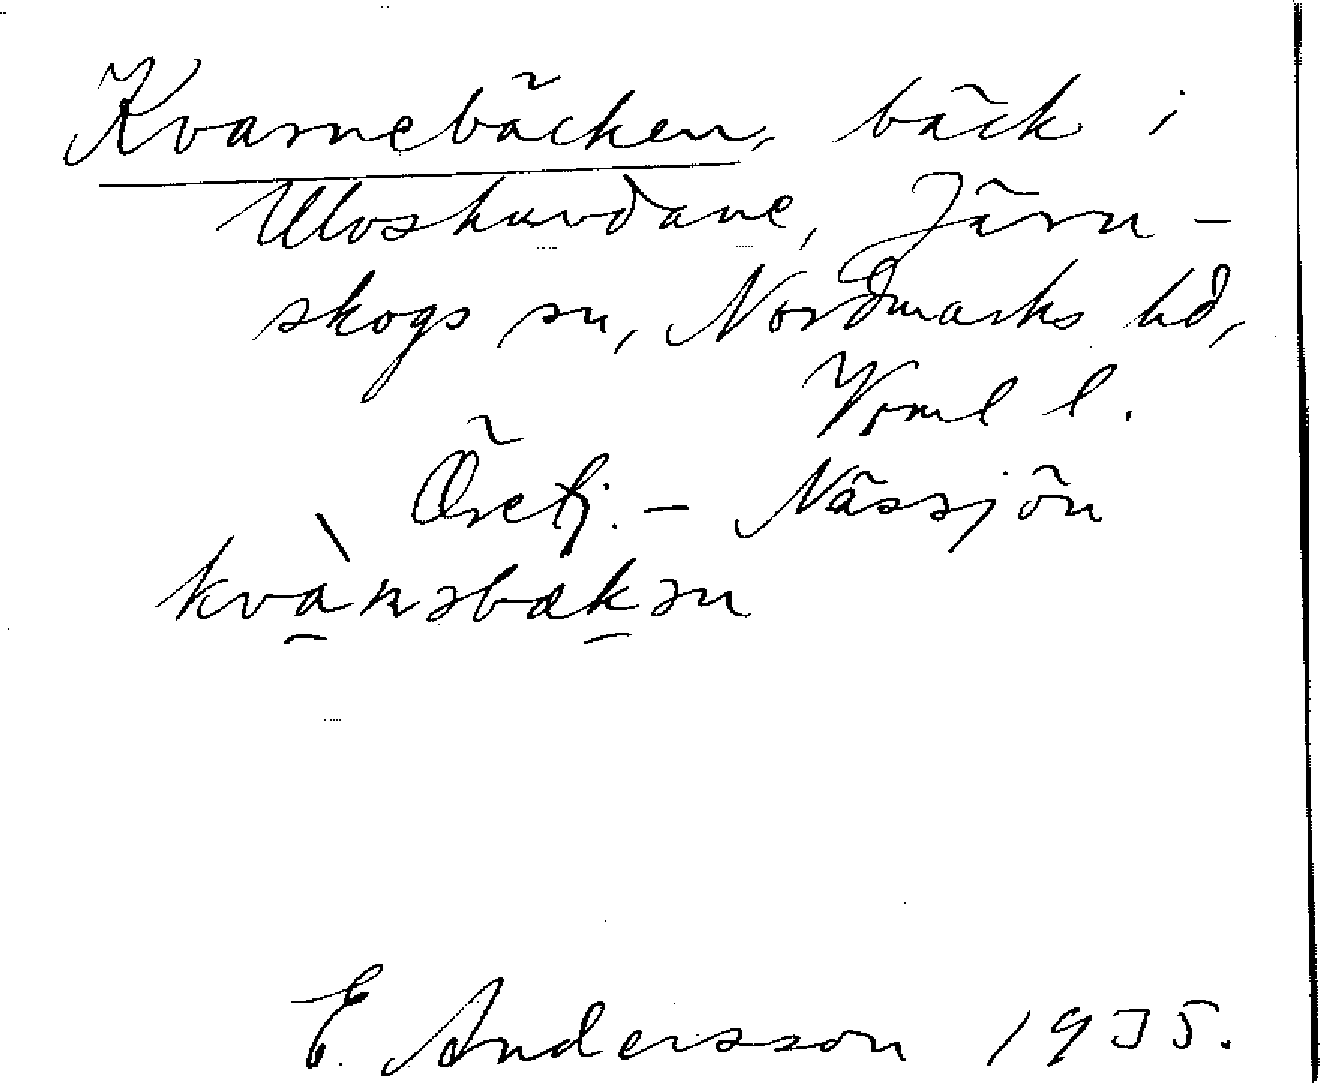 Kvarnebäcken, bäck i
Ulvshuvdane, Järn-
skogs sn, Nordmarks hd,
Vrml l.
Öretj. - Nässjön
kvàɴəbækən
E. Andersson 1935.